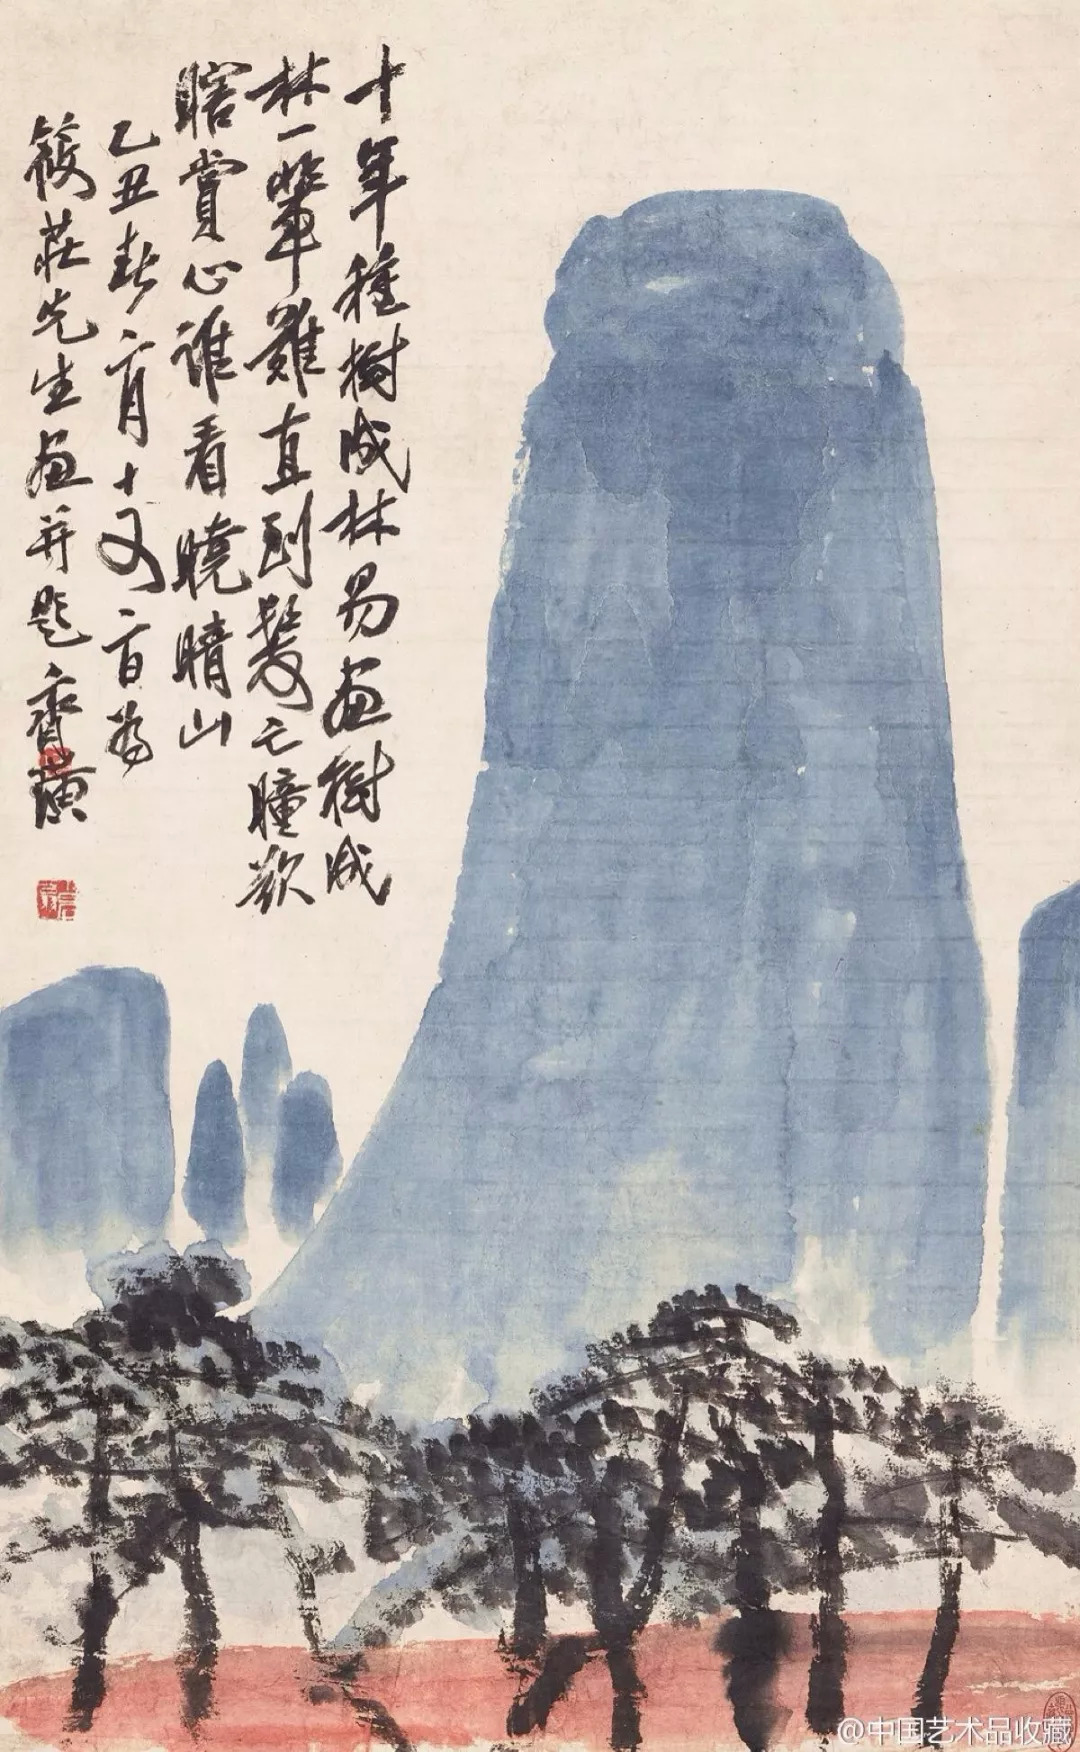 十年種樹成林易画樹成
林一輩難直到髮亡瞳欲
瞎賞心誰看曉晴山
乙丑春二月十又二日為
筱莊先生画并題齊璜
@中国艺术品收藏